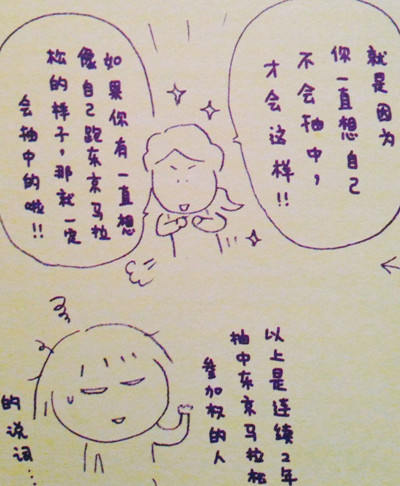 就是因为
你一直想自己
不会抽中，
才会这样!!
如果你有一直想
像自己跑东京马拉
松的样子，那就一定
会抽中的啦!!
以上是连续2年
抽中东京马拉松
参加权的人
的说词…